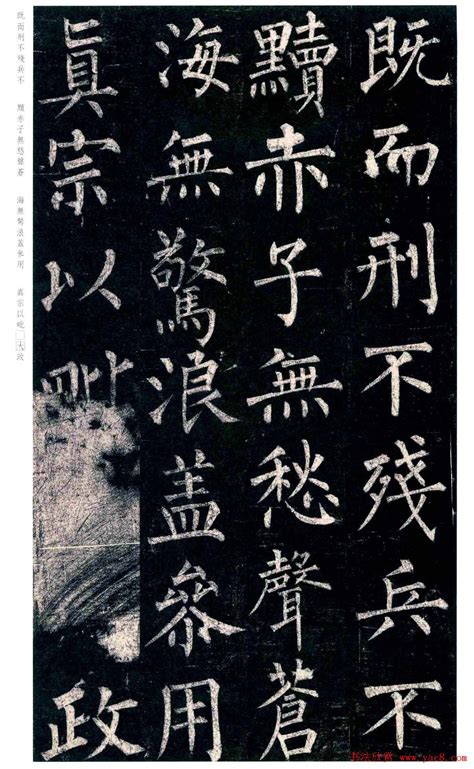 既而刑不殘兵不
黷赤子無愁聲蒼
海無驚浪蓋參用
眞宗以毗政
既而刑不殘兵不　黷赤子無愁聲蒼　海無驚浪蓋參用　真宗以毗□大政
书法欣赏 www.yac8.com